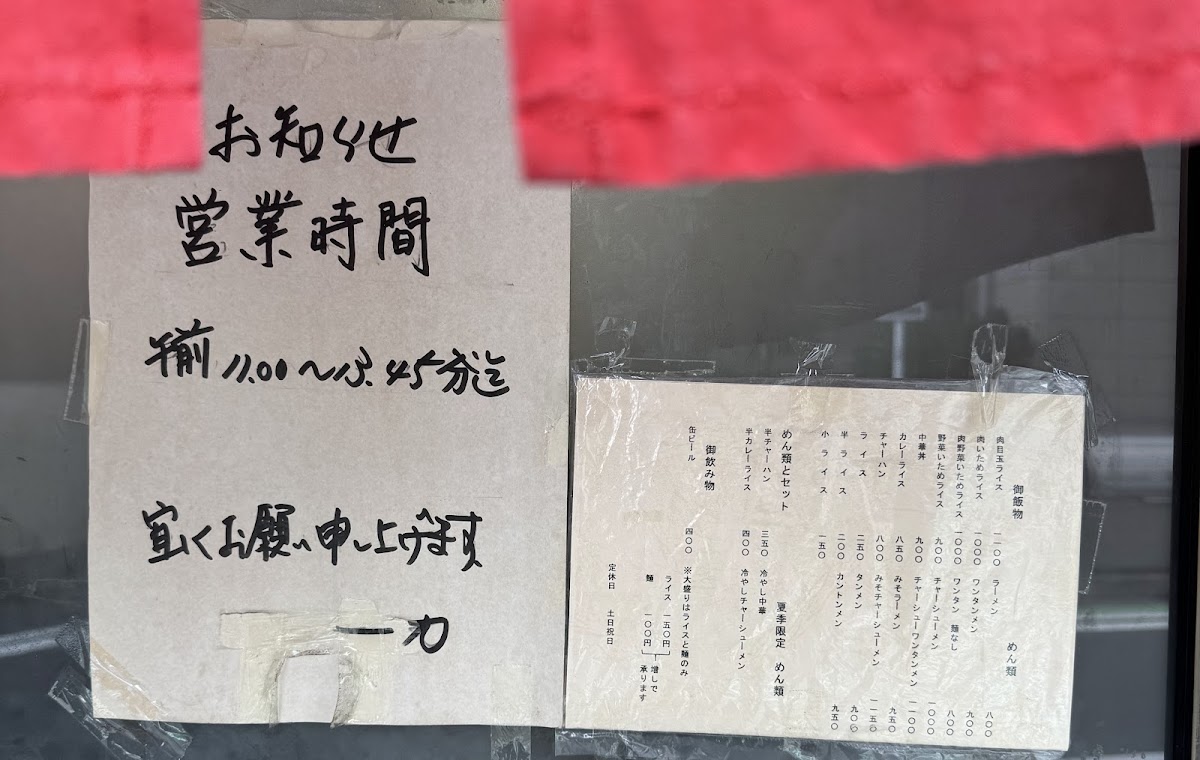 お知らせ
営業時間
午前 11.00〜13.45分迄
宜くお願い申し上げます
一力
御飯物
肉目玉ライス 一一〇〇
肉いためライス 一〇〇〇
肉野菜いためライス 一〇〇〇
野菜いためライス 九〇〇
中華丼 九〇〇
カレーライス 八五〇
チャーハン 八〇〇
ライス 二五〇
半ライス 二〇〇
小ライス 一五〇
めん類とセット
半チャーハン 三五〇
半カレーライス 四〇〇
御飲み物
缶ビール 四〇〇
めん類
ラーメン 八〇〇
ワンタンメン 九〇〇
ワンタン 麺なし 八〇〇
チャーシューメン 一〇〇〇
チャーシューワンタンメン 一一〇〇
みそラーメン 九五〇
みそチャーシューメン 一一五〇
タンメン 九〇〇
カントンメン 九五〇
夏季限定 めん類
冷やし中華
冷やしチャーシューメン
※大盛りはライスと麺のみ
ライス 一五〇円
麺 一〇〇円
増しで
承ります
定休日 土日祝日